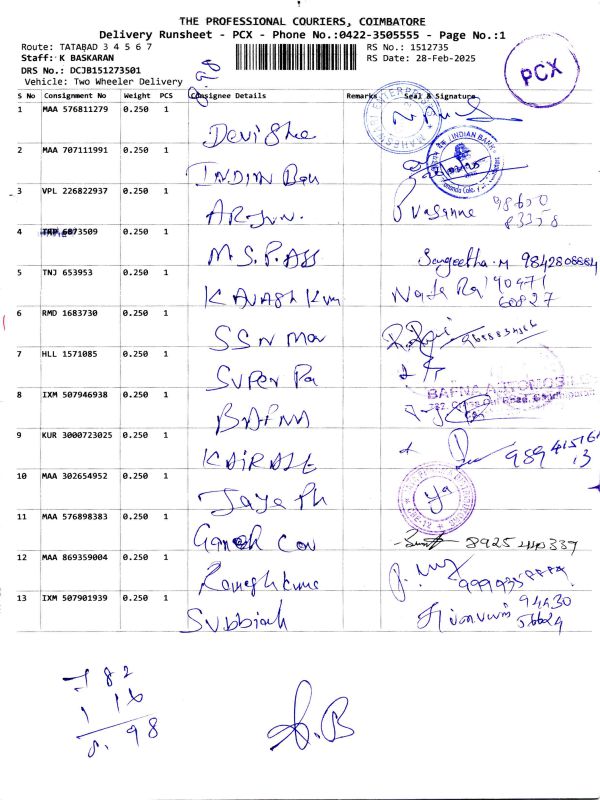 THE PROFESSIONAL COURIERS, COIMBATORE
Delivery Runsheet - PCX - Phone No.:0422-3505555 - Page No.:1
Route: TATABAD 3 4 5 6 7
RS No.: 1512735
Staff: K BASKARAN
RS Date: 28-Feb-2025
DRS No.: DCJB151273501
Vehicle: Two Wheeler Delivery
PCX
S No Consignment No Weight PCS Consignee Details Remarks Seal & Signature
1 MAA 576811279 0.250 1 Devi Shee
2 MAA 707111991 0.250 1 INDIAN Ban INDIAN BANK
3 VPL 226822937 0.250 1 ARJUN. 98650
83358
4 6873509 0.250 1 M.S.P. ASS Sangeetha.M 9842808884
5 TNJ 653953 0.250 1 KAVASH Kum 90471
60827
6 RMD 1683730 0.250 1 SSN Mar
7 HLL 1571085 0.250 1 SUPER Pa
BAFNA AUTOMOB
8 IXM 507946938 0.250 1 BAFNA
9 KUR 3000723025 0.250 1 KAIRALE 989 415161
13
10 MAA 302654952 0.250 1 Jaya Ph
11 MAA 576898383 0.250 1 Ganesh Cou 8925 440337
12 MAA 869359004 0.250 1 Ramesh kuma
13 IXM 507901939 0.250 1 Subbiah 94430
56624
82
1 16
98